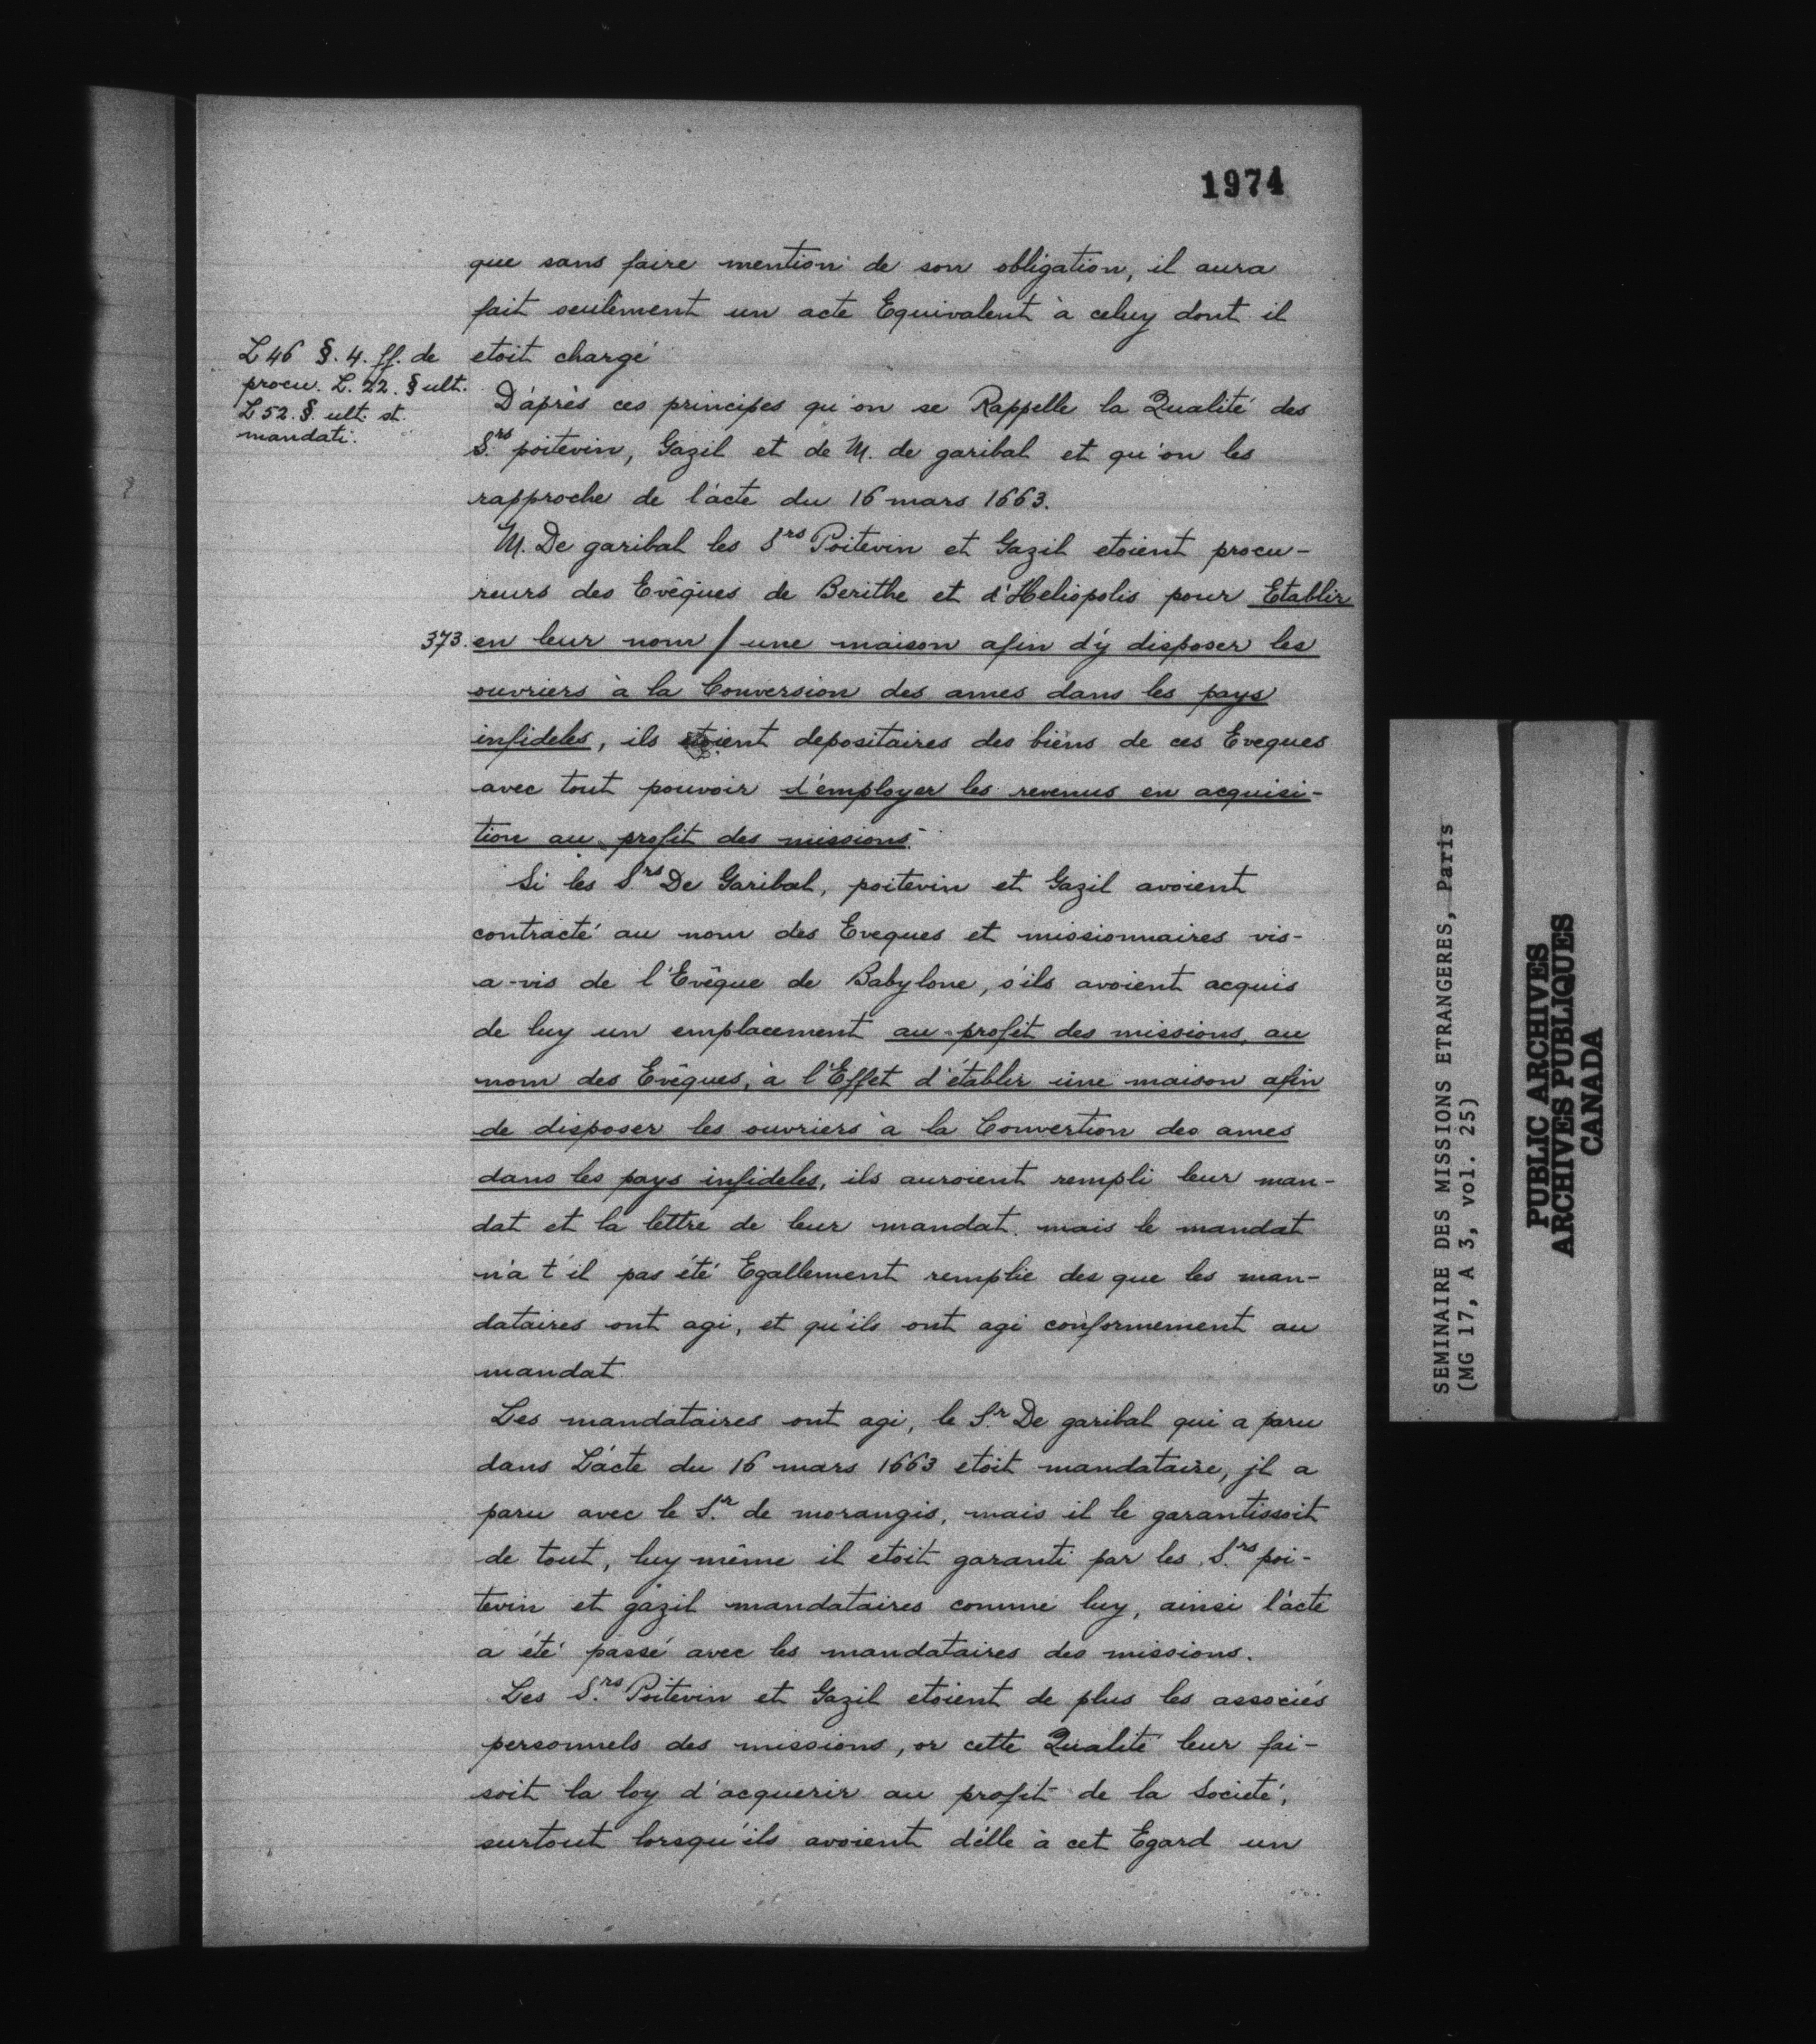 1974
que sans faire mention de son obligation, il aura
fait seulement un acte Equivalent à celuy dont il
etoit chargé
L 46 §. 4. ff. de
procu. L. 22. § ult.
L 52. §. ult. st.
mandati.
D'après ces principes qu'on se Rappelle la Qualité des
S.rs poitevin, Gazil et de M. de garibal et qu'on les
rapproche de l'acte du 16 mars 1663.
M. De garibal les S.rs Poitevin et Gazil etoient procu-
reurs des Evêques de Berithe et d'Heliopolis pour Etablir
373. en leur nom / une maison afin d'y disposer les
ouvriers à la Conversion des ames dans les pays
infideles, ils etoient depositaires des biens de ces Eveques
avec tout pouvoir d'employer les revenus en acquisi-
tion au profit des missions.
Si les S.rs De Garibal, poitevin et Gazil avoient
contracté au nom des Eveques et missionnaires vis-
a-vis de l'Evêque de Babylone, s'ils avoient acquis
de luy un emplacement au profit des missions, au
nom des Evêques, à l'Effet d'établir une maison afin
de disposer les ouvriers à la Convertion des ames
dans les pays infideles, ils auroient rempli leur man-
dat et la lettre de leur mandat. mais le mandat
n'a t'il pas été Egallement remplie des que les man-
dataires ont agi, et qu'ils ont agi conformement au
mandat
Les mandataires ont agi, le S.r De garibal qui a paru
dans L'acte du 16 mars 1663 etoit mandataire, jl a
paru avec le S.r de morangis, mais il le garantissoit
de tout, luy même il etoit garanti par les S.rs poi-
tevin et gazil mandataires comme luy, ainsi l'acte
a été passé avec les mandataires des missions.
Les S.rs Poitevin et Gazil etoient de plus les associés
personnels des missions, or cette Qualité leur fai-
soit la loy d'acquerir au profit de la Societé,
surtout lorsqu'ils avoient d'elle à cet Egard un
SEMINAIRE DES MISSIONS ETRANGERES, Paris
(MG 17, A 3, vol. 25)
PUBLIC ARCHIVES
ARCHIVES PUBLIQUES
CANADA